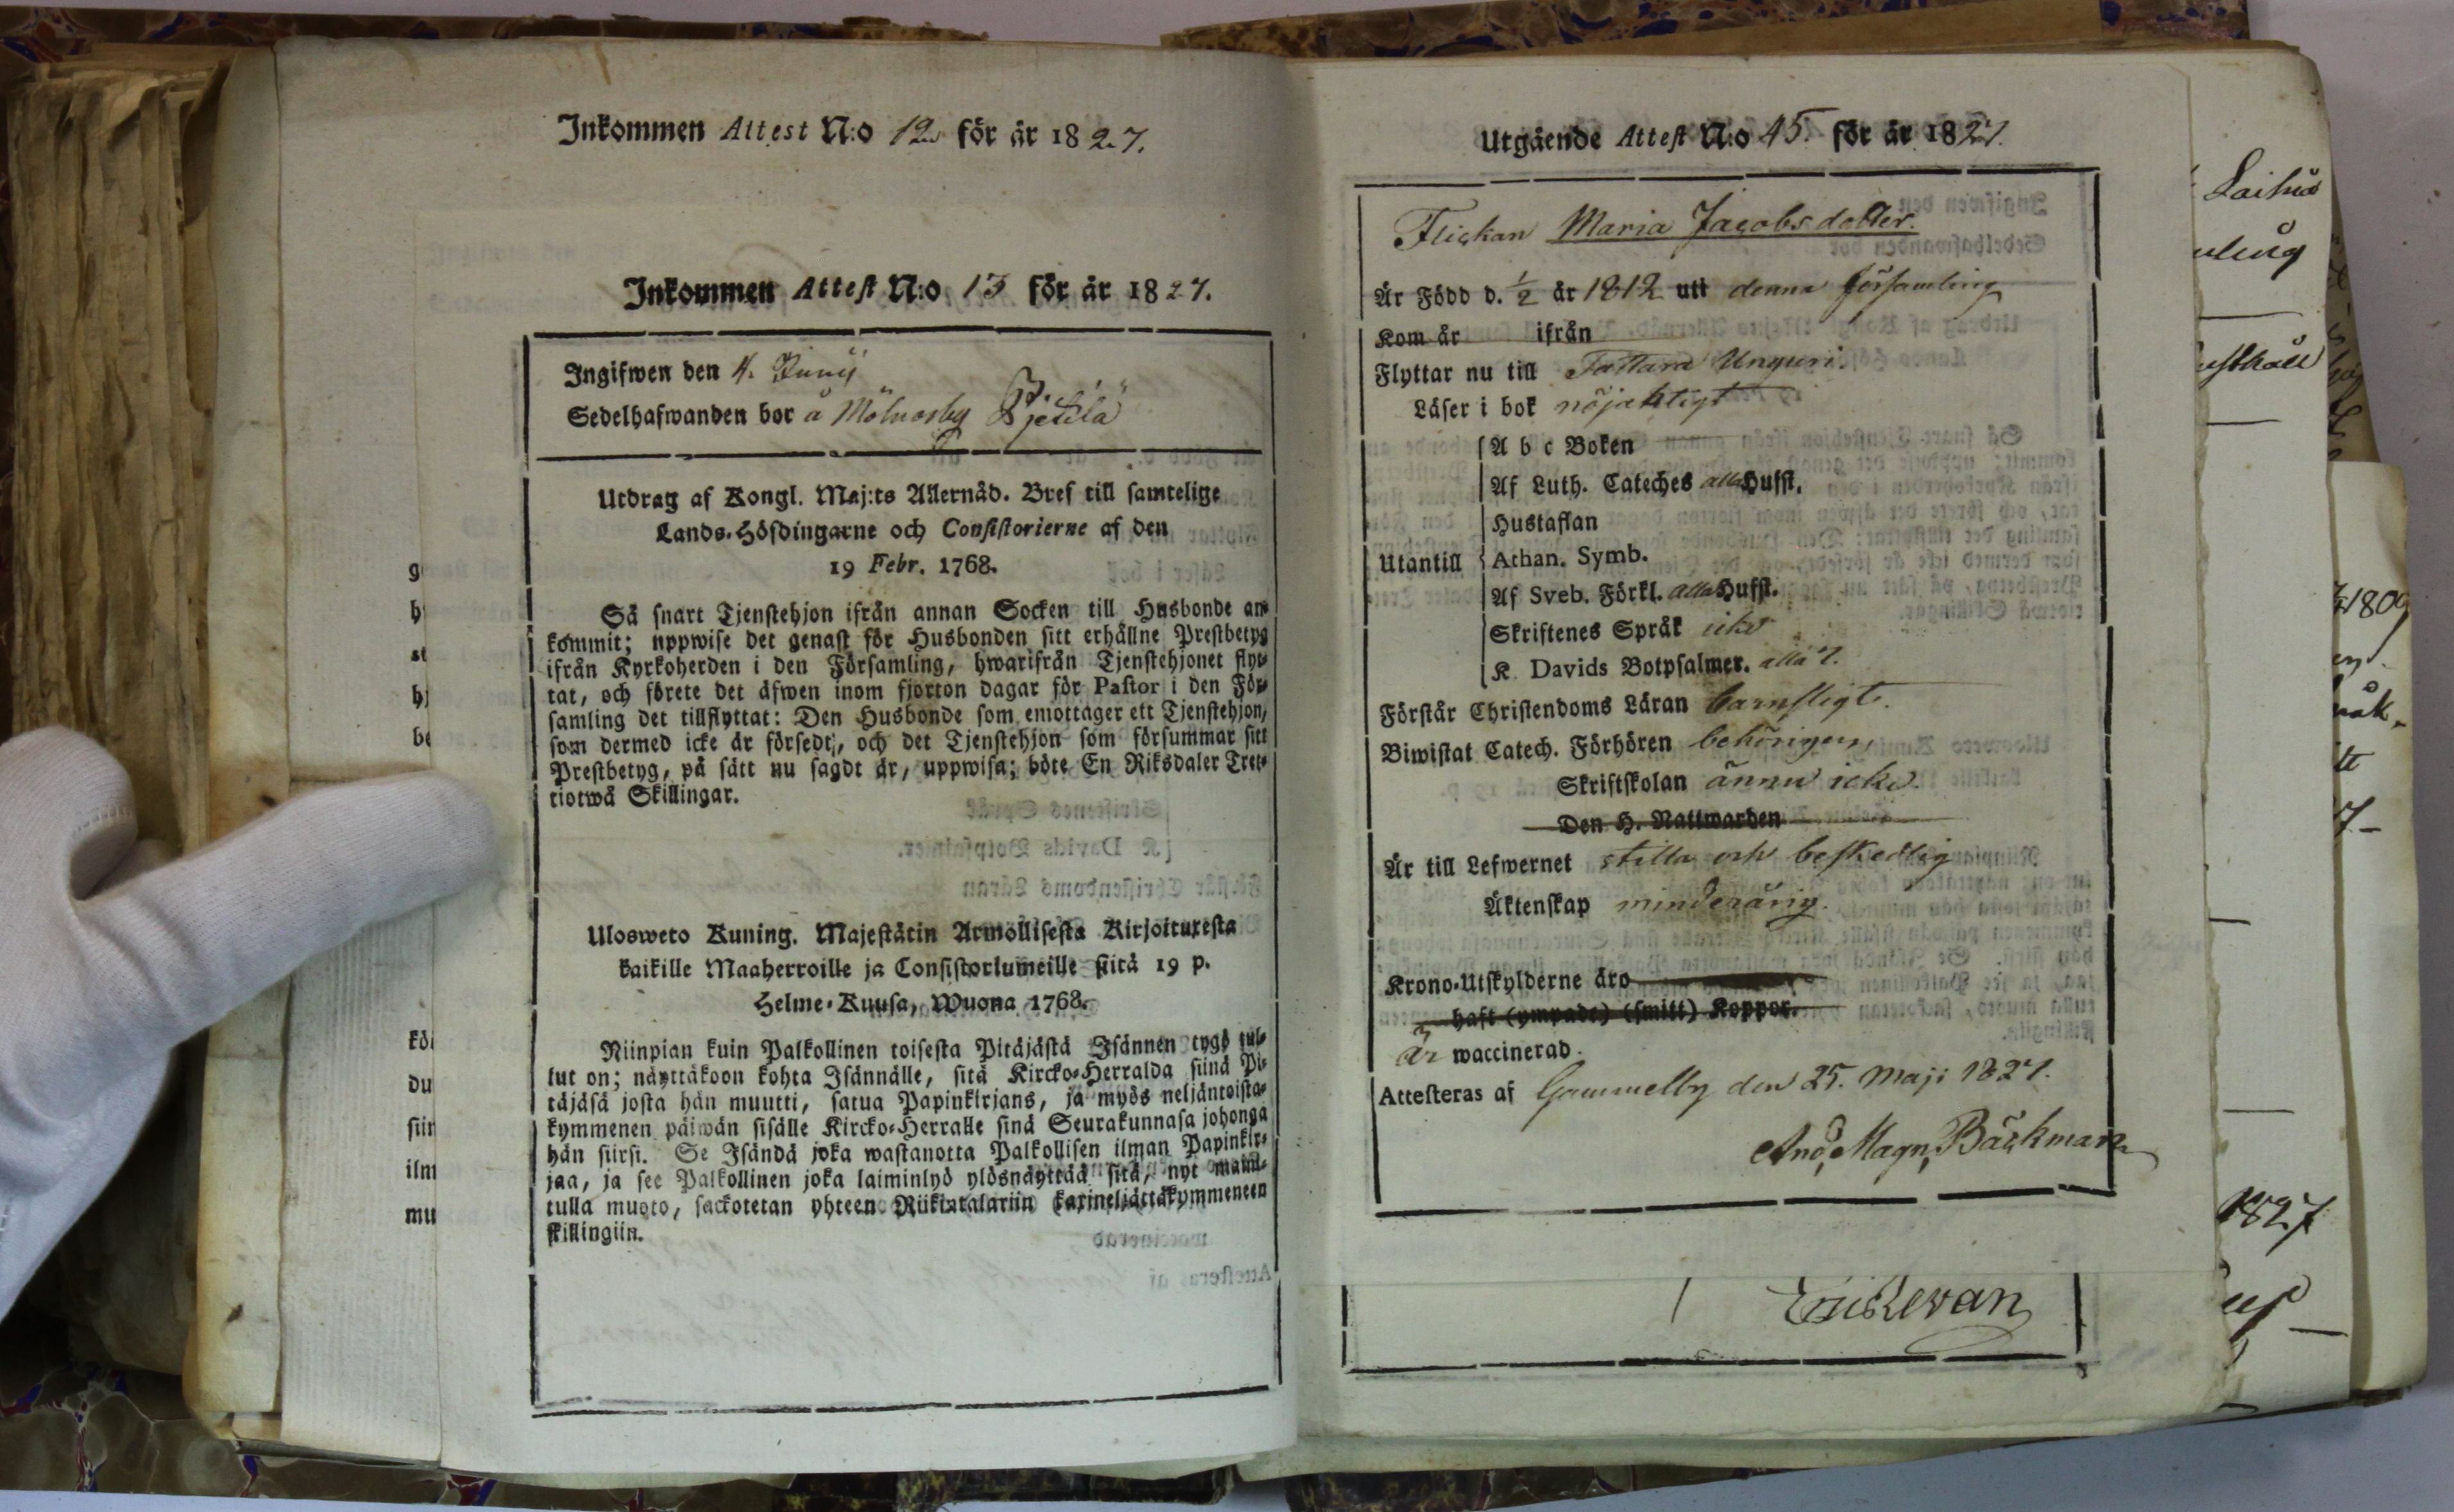 Inkommen Attest N:o 12. för år 1827.
Inkommen Attest N:o 13 för år 1827.
Ingifwen den 4. Junij
Sedelhafwanden bor å
Utdrag af Kongl. Maj:ts Allernåd. Bref till samtelige
Lands-Höfdingarne och Consistorierne af den
19 Febr. 1768.
Så snart Tjenstehjon ifrån annan Socken till Husbonde an-
kommit; uppwise det genast för Husbonden sitt erhållne Prestbetyg
ifrån Kyrkoherden i den Församling, hwarifrån Tjenstehjonet flyt-
tat, och förete det äfwen inom fjorton dagar för Pastor i den För-
samling det tillflyttat: Den Husbonde som emottager ett Tjenstehjon,
som dermed icke är försedt, och det Tjenstehjon som försummar sitt
Prestbetyg, på sätt nu sagdt är, uppwisa; böte En Riksdaler Tret-
tiotwå Skillingar.
Ulosweto Kuning. Majestätin Armollisesta Kirjoituxesta
kaikille Maaherroille ja Consistoriumeille siitä 19 p.
Helme-Kuusa, Wuona 1768.
Niinpian kuin Palkollinen toisesta Pitäjästä Isännen tygö tul-
lut on; näyttäkoon kohta Isännälle, sitä Kircko-Herralda siinä Pi-
täjäsä josta hän muutti, satua Papinkirjans, ja myös neljäntoista-
kymmenen päiwän sisälle Kircko-Herralle sinä Seurakunnasa johonga
hän siirsi. Se Isändä joka wastanotta Palkollisen ilman Papinkir-
jaa, ja see Palkollinen joka laiminlyö ylösnäyttää sitä, nyt maini-
tulla muoto, sackotetan yhteen Riikintalariin kaxineljättäkymmeneen
skillingiin.
Utgående Attest N:o 45. för år 1827.
Flickan Maria Jacobsdotter.
Är Född d. 1/2 år 1812 uti denna församling
Kom år ifrån
Flyttar nu till Fattara Unguri.
Läser i bok nöjaktigt
A b c Boken
Af Luth. Cateches alla Hufst.
Hustaflan
Utantill Athan. Symb.
Af Sveb. Förkl. alla Hufst.
Skriftenes Språk icke
K. Davids Botpsalmer. alla 7.
Förstår Christendoms Läran barnsligt.
Biwistat Catech. Förhören behörigen,
Skriftskolan ännu icke.
Den H. Nattwarden
Är till Lefwernet stilla och beskedlig
Äktenskap minderårig.
Krono-Utskylderne äro
haft (ympade) (smitt) Koppor.
är waccinerad.
Attesteras af Gammelby den 25. Maji 1827.
And. Magn. Bäckman